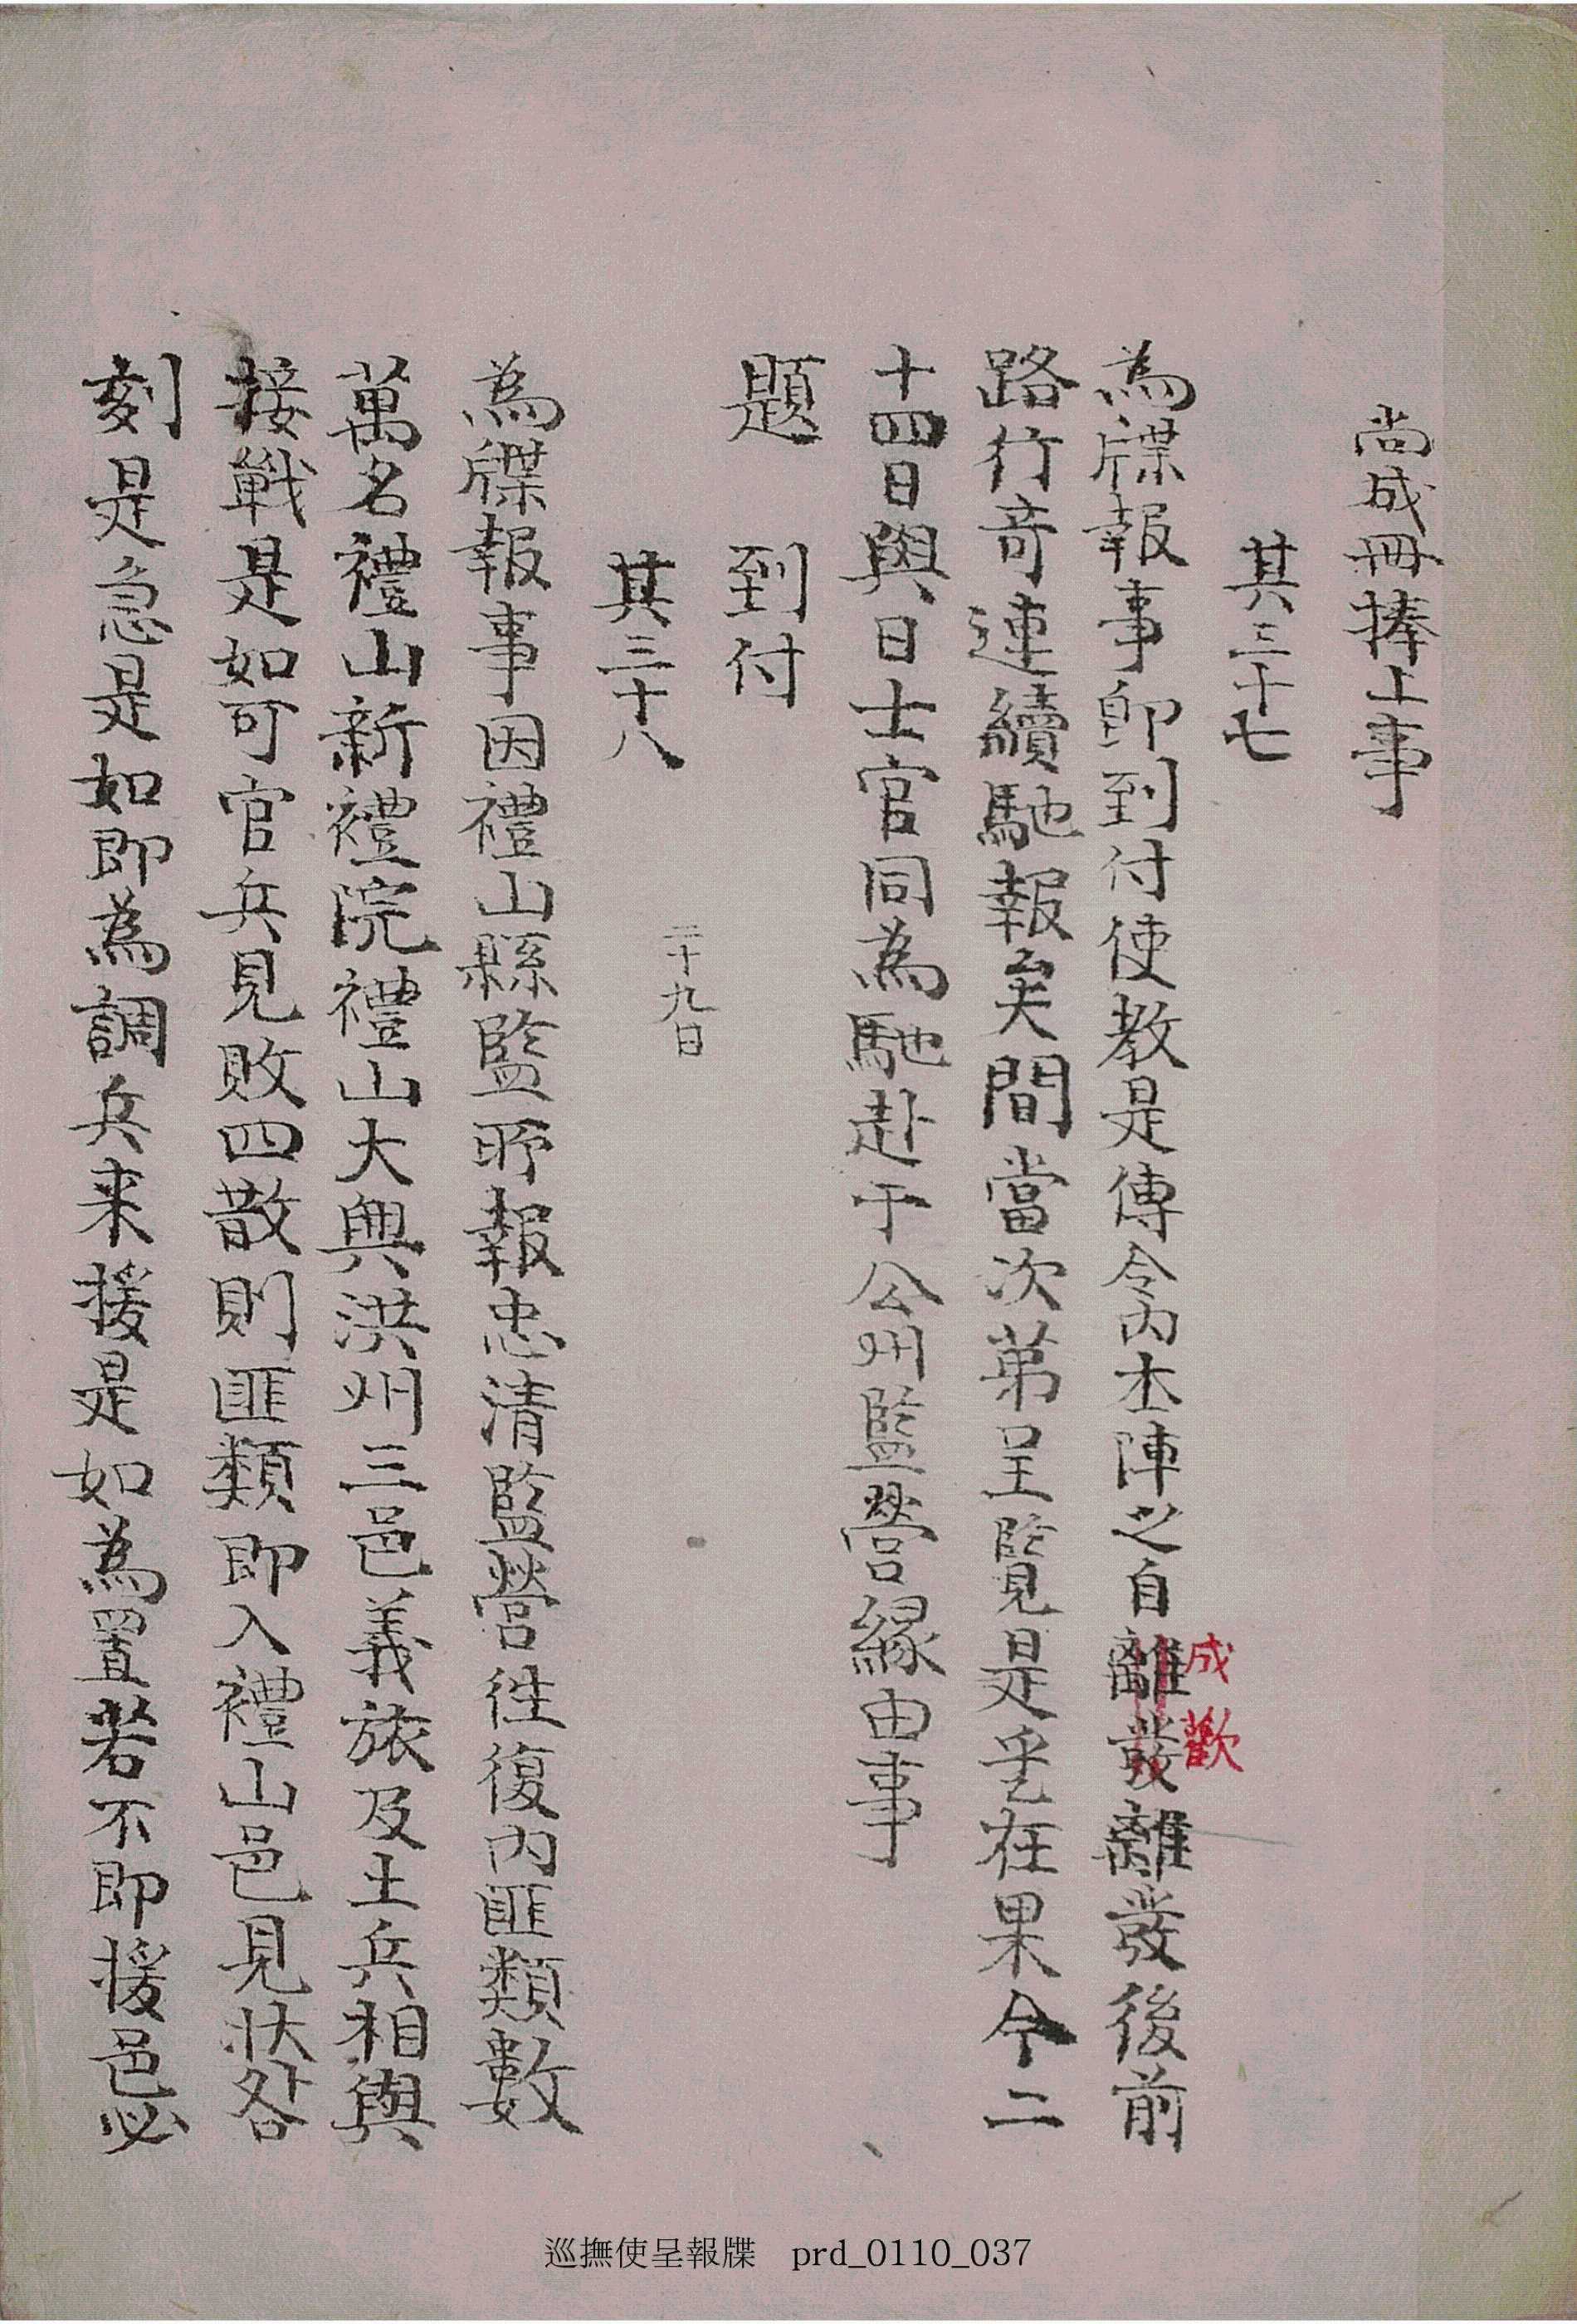 尚成冊捧上事
其三十七
為牒報事卽到付使敎是傳令內本陣之自離發離發後前
成歡
路行奇連續馳報矣間當次第呈覽是乎在果今二
十四日與日士官同為馳赴于公州監營緣由事
題 到付
二十九日
其三十八
為牒報事因禮山縣監所報忠淸監營徃復內匪類數
萬名禮山新禮院禮山大興洪州三邑義旅及土兵相與
接戰是如可官兵見敗四散則匪類卽入禮山邑見狀咎
刻是急是如卽為調兵来援是如為置若不卽援邑必
巡撫使呈報牒 prd_0110_037